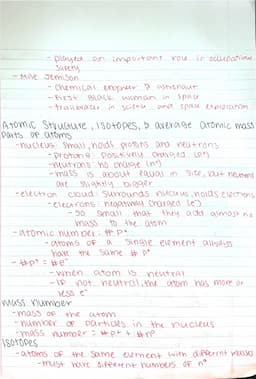 - played an important role in occupational
safety
- Mae Jemison
- chemical engineer & astronaut
- First Black woman in space
- trailblazer in science and space exploration
Atomic Structure, Isotopes, & average atomic mass
Parts of atoms
- nucleus: small, holds protons and neutrons
- protons: positively charged (p⁺)
- neutrons: no charge (n°)
- mass is about equal in size, but neutrons
are slightly bigger
- electron cloud: surrounds nucleus, holds electrons
- electrons: negatively charged (e⁻)
- so small that they add almost no
mass to the atom
- atomic number: # p⁺
- atoms of a single element always
have the same # p⁺
- #p⁺ = #e⁻
- when atom is neutral
- IF not neutral, the atom has more or
less e⁻
mass number
- mass of the atom
- number of particles in the nucleus
- mass number = #p⁺ + #n°
Isotopes
- atoms of the same element with different masses
- must have different numbers of n°